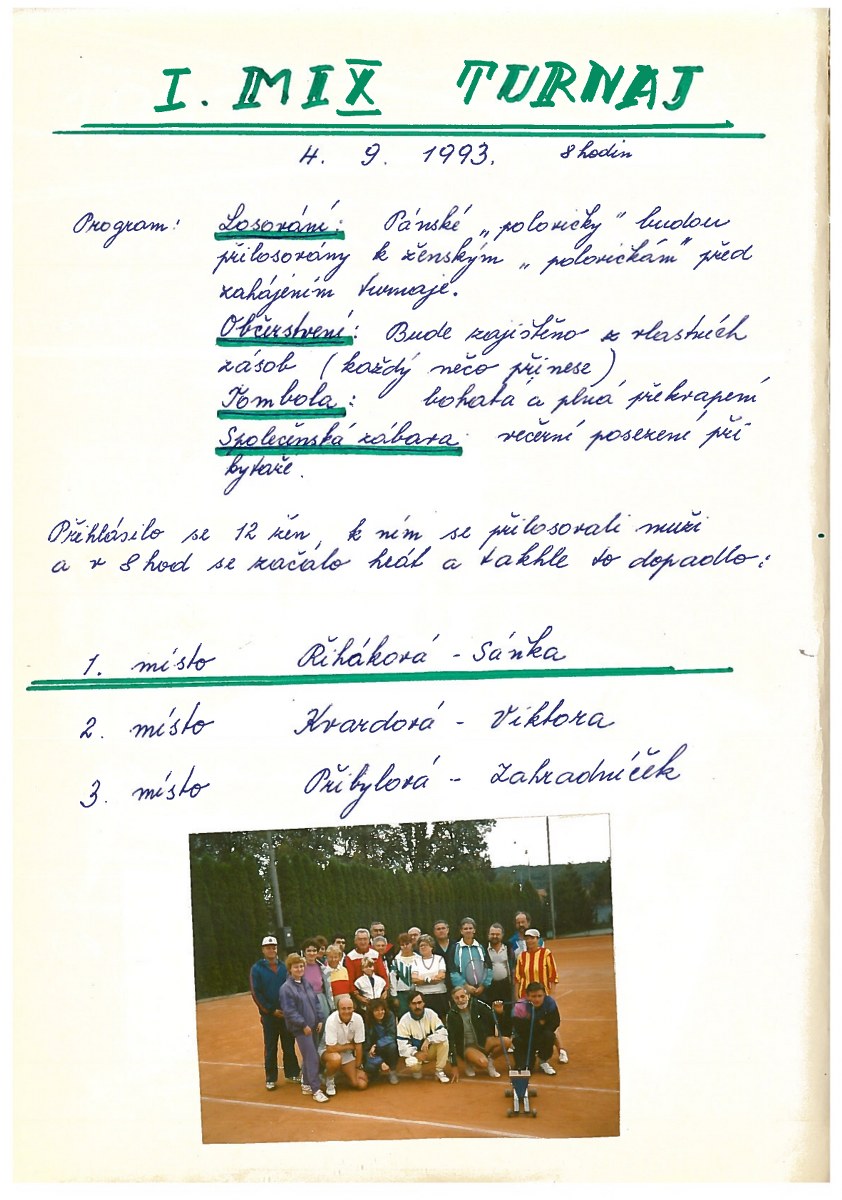 I. MIX TURNAJ
4. 9. 1993. 8 hodin
Program: Losování: Pánské „polovičky" budou
přilosovány k ženským „polovičkám" před
zahájením turnaje.
Občerstvení: Bude zajištěno z vlastních
zásob (každý něco přinese)
Tombola: bohatá a plná překvapení
Společenská zábava: večerní posezení při
kytaře.
Přihlásilo se 12 žen, k nim se přilosovali muži
a v 8 hod se začalo hrát a takhle to dopadlo:
1. místo Řiháková - Sáňka
2. místo Kvardová - Viktora
3. místo Přibylová - Zahradníček